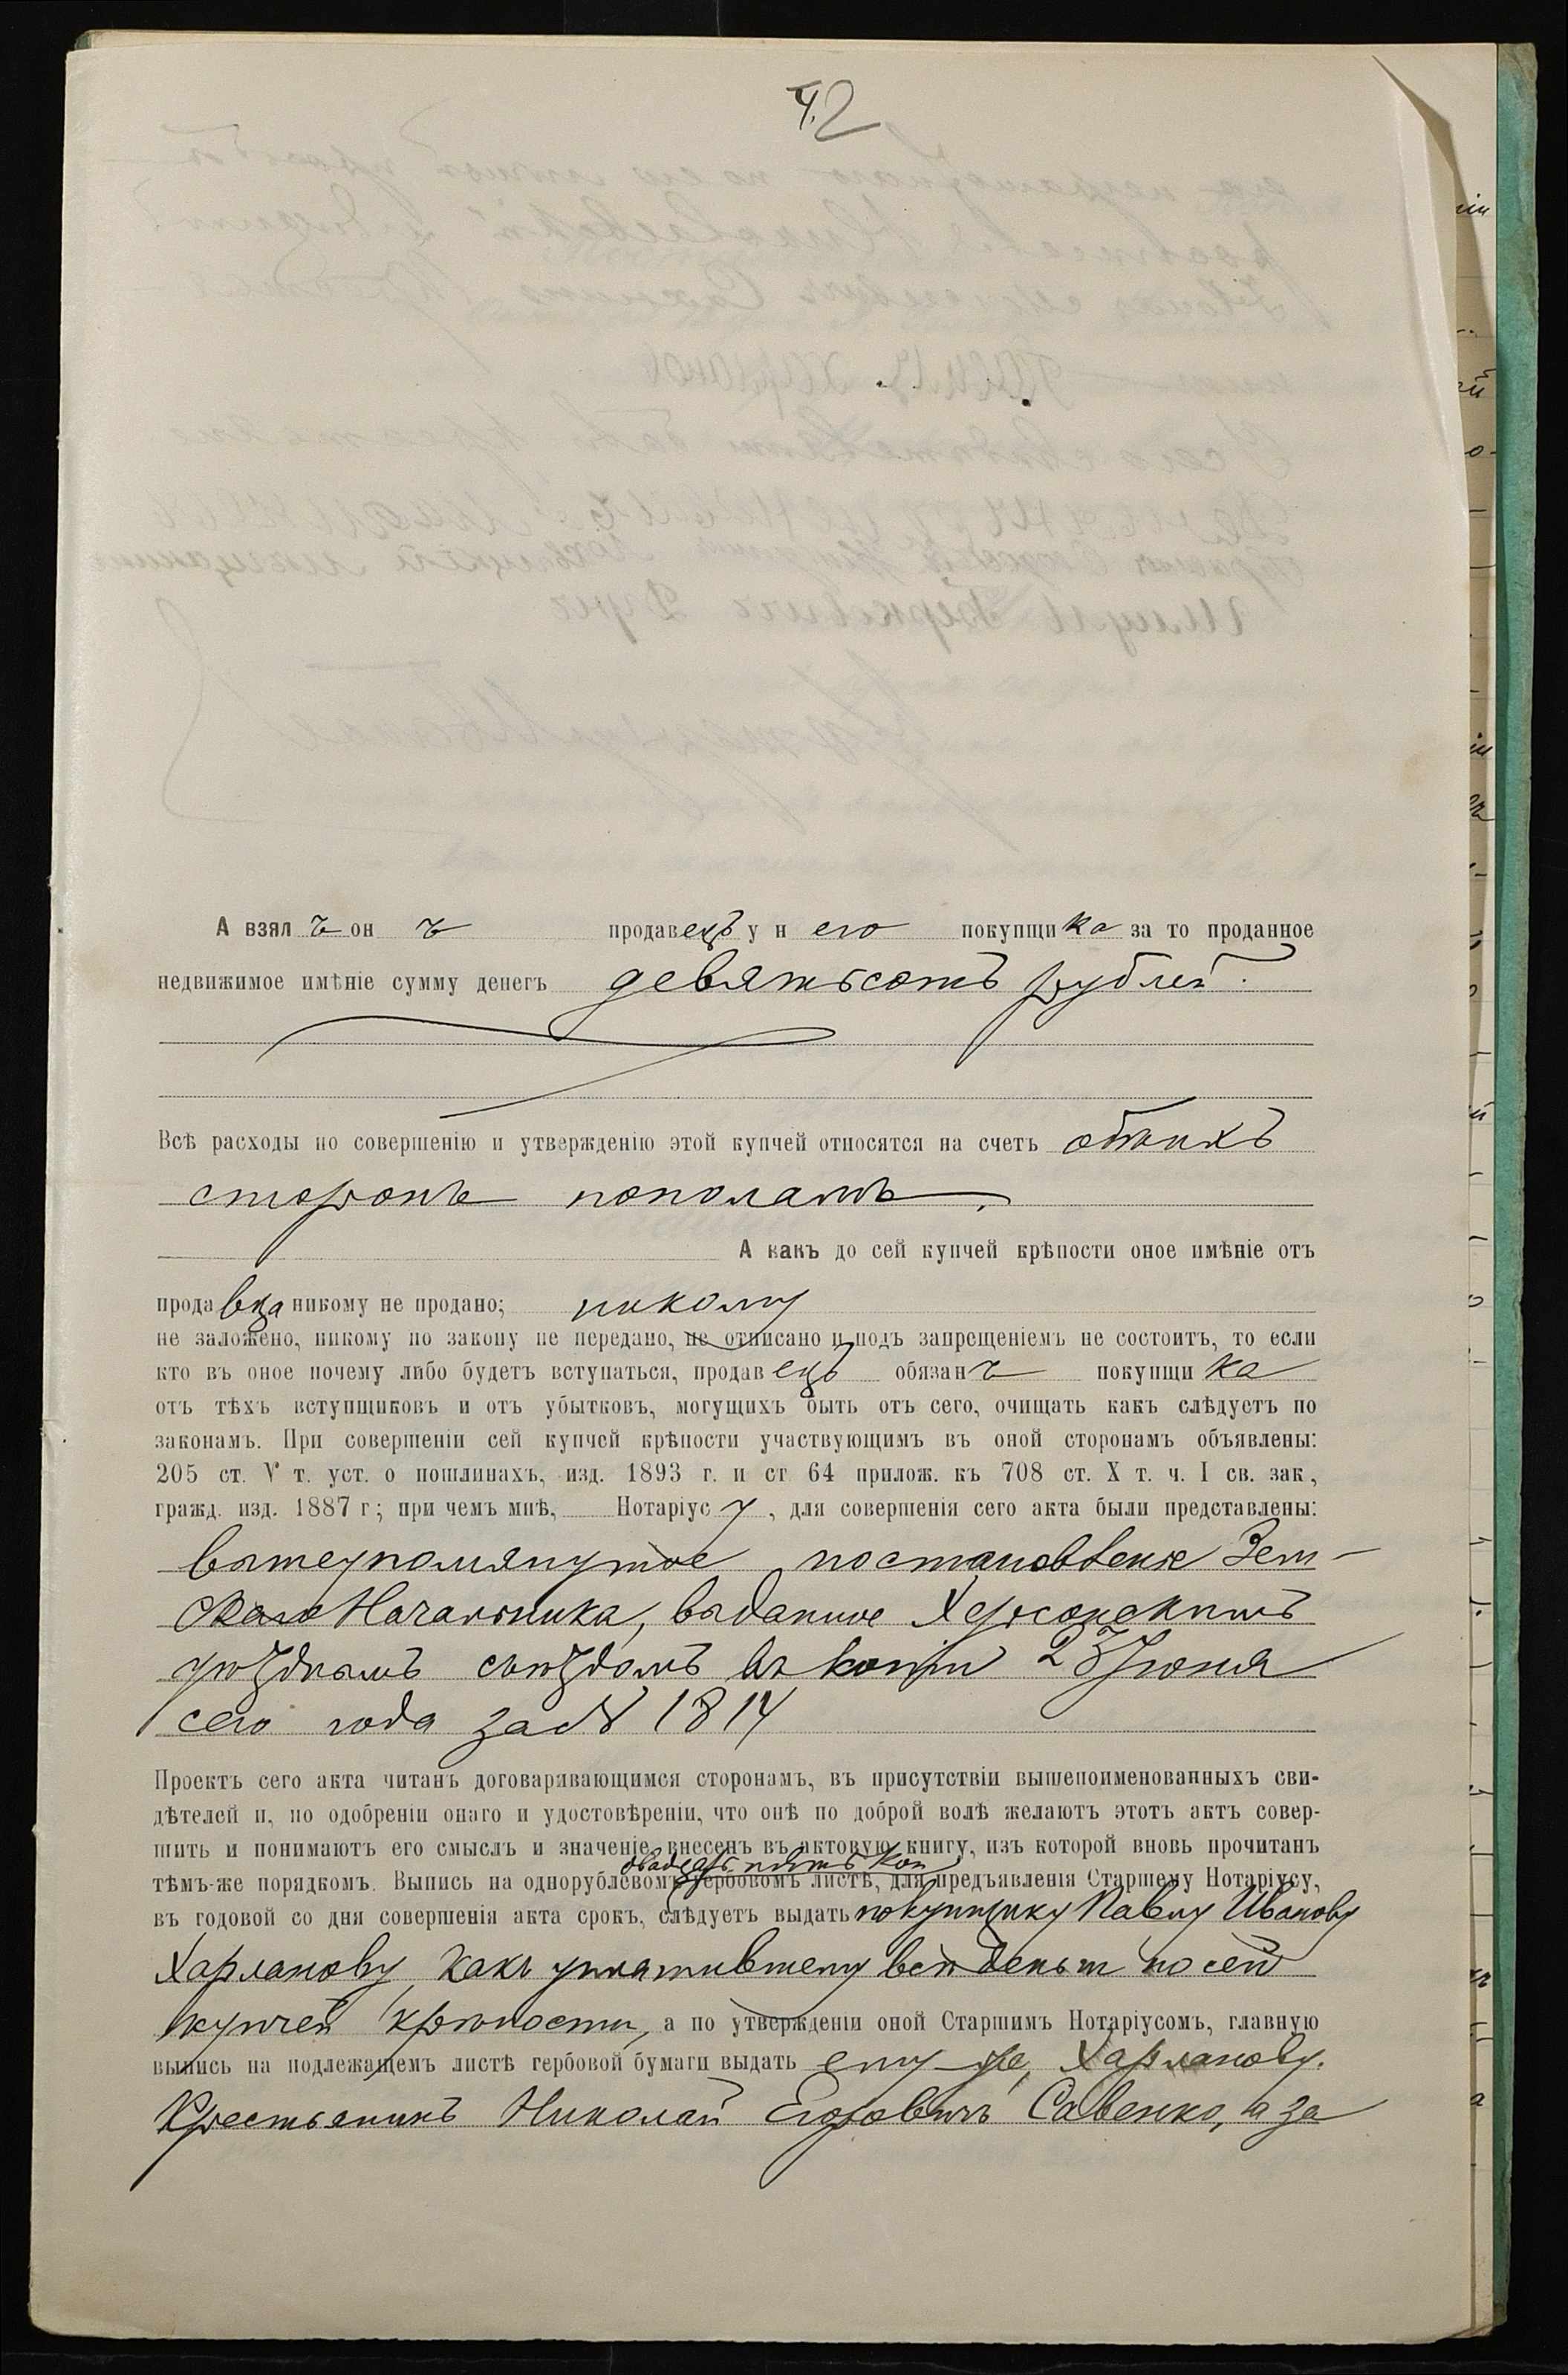 42
А взялъ онъ продавецъ у него покупщика за то проданное
недвижимое имѣніе сумму денегъ девятьсотъ рублей.
Всѣ расходы по совершенію и утвержденію этой купчей относятся на счетъ обѣихъ
сторонъ пополамъ.
А какъ до сей купчей крѣпости оное имѣніе отъ
продавца никому не продано; никому
не заложено, никому по закону не передано, не отписано и подъ запрещеніемъ не состоитъ, то если
кто въ оное почему либо будетъ вступаться, продавецъ обязанъ покупщика
отъ тѣхъ вступщиковъ и отъ убытковъ, могущихъ быть отъ сего, очищать какъ слѣдуетъ по
законамъ. При совершеніи сей купчей крѣпости участвующимъ въ оной сторонамъ объявлены:
205 ст. V т. уст. о пошлинахъ, изд. 1893 г. и ст 64 прилож. къ 708 ст. X т. ч. I св. зак,
гражд. изд. 1887 г; при чемъ мнѣ, Нотаріусу, для совершенія сего акта были представлены:
вышеупомянутое постановленіе Зем-
скаго Начальника, выданное Херсонскимъ
уѣзднымъ съѣздомъ въ копіи 23 Іюня
сего года за № 1814
Проектъ сего акта читанъ договаривающимся сторонамъ, въ присутствіи вышепоименованныхъ сви-
дѣтелей и, по одобреніи онаго и удостовѣреніи, что онѣ по доброй волѣ желаютъ этотъ актъ совер-
шить и понимаютъ его смыслъ и значеніе, внесенъ въ актовую книгу, изъ которой вновь прочитанъ
двадцать пять коп
тѣмъ-же порядкомъ. Выпись на однорублевомъ гербовомъ листѣ, для предъявленія Старшему Нотаріусу,
въ годовой со дня совершенія акта срокъ, слѣдуетъ выдать покупщику Павлу Иванову
Харланову, какъ уплатившему всѣ деньги по сей
купчей крѣпости, а по утвержденіи оной Старшимъ Нотаріусомъ, главную
выпись на подлежащемъ листѣ гербовой бумаги выдать ему-же, Харланову.
Крестьянинъ Николай Егоровичъ Савенко, а за